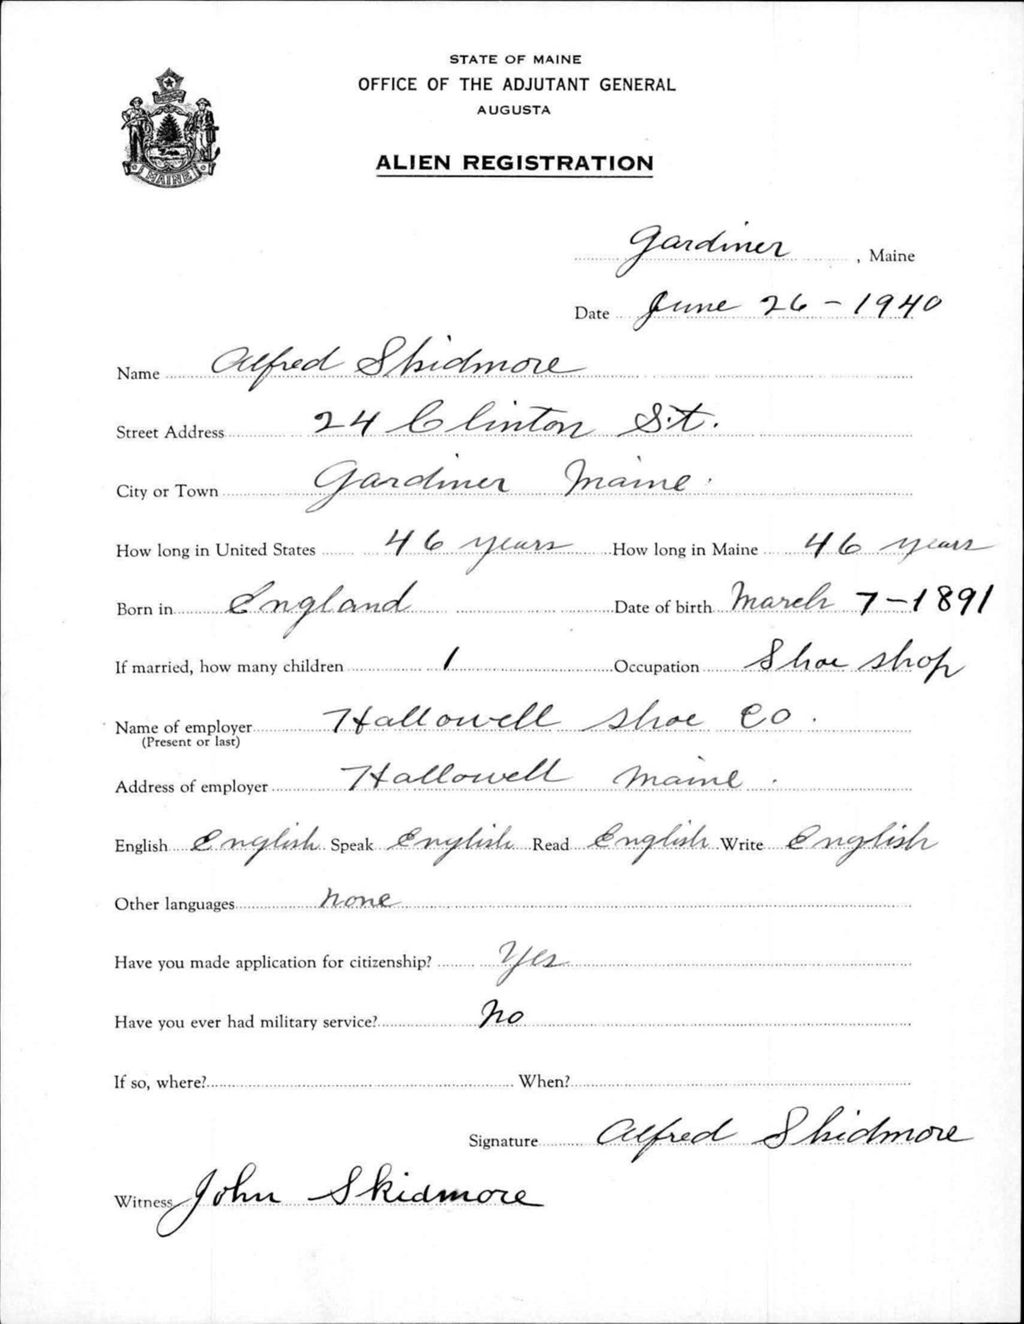 STATE OF MAINE
OFFICE OF THE ADJUTANT GENERAL
AUGUSTA
ALIEN REGISTRATION
MAINE
Gardiner, Maine
Date June 26 - 1940
Name Alfred Skidmore
Street Address 24 Clinton St.
City or Town Gardiner Maine
How long in United States 46 years How long in Maine 46 years
Born in England Date of birth March 7 - 1891
If married, how many children 1 Occupation Shoe shop
Name of employer Hallowell Shoe Co.
(Present or last)
Address of employer Hallowell Maine.
English English Speak English Read English Write English
Other languages none
Have you made application for citizenship? Yes
Have you ever had military service? No
If so, where? When?
Signature Alfred Skidmore
Witness John Skidmore